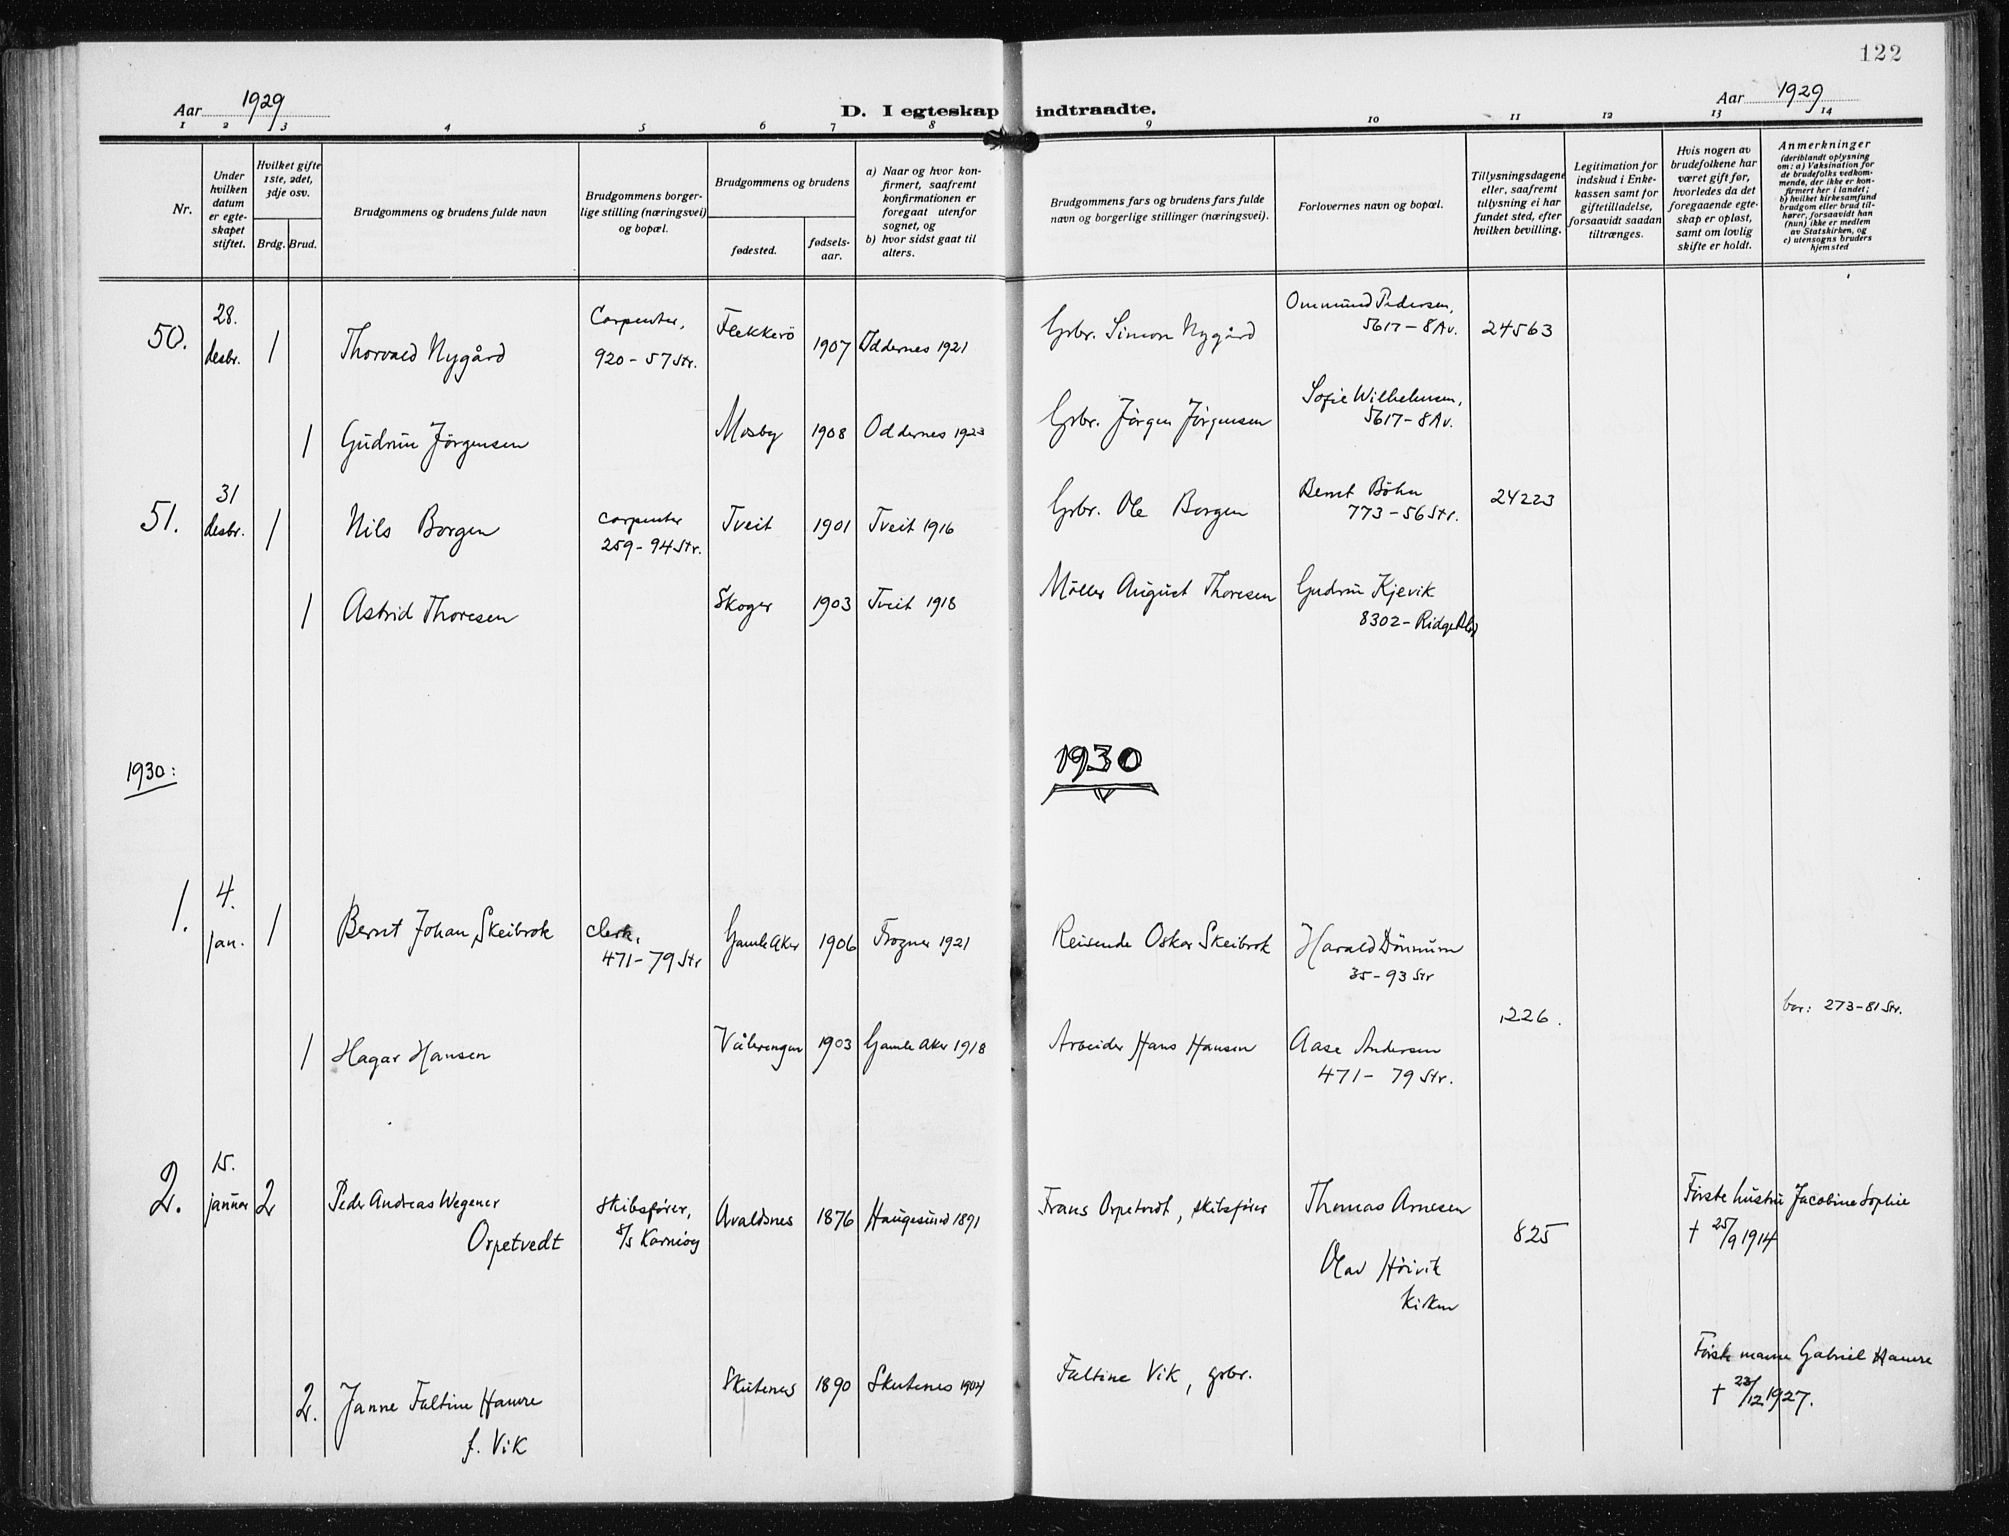 122
Aar 1929
D. I egteskap indtraadte.
Aar 1929
1 2 3 4 5 6 7 8 9 10 11 12 13 14
Nr.
Under hvilken datum er egte-skapet stiftet.
Hvilket gifte 1ste, 2det, 3dje osv.
Brdg. Brud.
Brudgommens og brudens fulde navn
Brudgommens borger-
lige stilling (næringsvei)
og bopæl.
Brudgommens og brudens
fødested.
fødsels-
aar.
a) Naar og hvor kon-
firmert, saafremt
konfirmationen er
foregaat utenfor
sognet, og
b) hvor sidst gaat til
alters.
Brudgommens fars og brudens fars fulde
navn og borgerlige stillinger (næringsvei).
Forlovernes navn og bopæl.
Tillysningsdagene
eller, saafremt
tillysning ei har
fundet sted, efter
hvilken bevilling.
Legitimation for
indskud i Enke-
kassen samt for
giftetilladelse,
forsaavidt saadan
tiltrænges.
Hvis nogen av
brudefolkene har
været gift før,
hvorledes da det
foregaaende egte-
skap er opløst,
samt om lovlig
skifte er holdt.
Anmerkninger
(deriblandt oplysning
om: a) Vaksination for
de brudefolks vedkom-
mende, der ikke er kon-
firmert her i landet;
b) hvilket kirkesamfund
brudgom eller brud til-
hører, forsaavidt han
(hun) ikke er medlem
av Statskirken, og
c) utensogns bruders
hjemsted
50. 28. desbr. 1 Thorvald Nygård Carpenter, 920 - 57 Str. Flekkerö 1907 Oddernes 1921 Grbr. Simon Nygård Ommund Pedersen, 5617 - 8 Av. 24563
1 Gudrun Jörgensen Mosby 1908 Oddernes 1923 Grbr. Jörgen Jörgensen Sofie Wilhelmsen, 5617 - 8 Av.
51. 31 desbr. 1 Nils Borgen Carpenter 259 - 94 Str. Tveit 1901 Tveit 1916 Grbr. Ole Borgen Bernt Böhn 773 - 56 Str. 24223
1 Astrid Thoresen Skoger 1903 Tveit 1918 Möller August Thoresen Gudrun Kjevik 8302 - Ridge Blvd
1930:
1930
1. 4. jan. 1 Bernt Johan Skeibrok Clerk, 471 - 79 Str Gamle Aker 1906 Frogner 1921 Reisende Oskar Skeibrok Harald Dönnum 35 - 93 Str
226. bor: 273 - 81 Str.
1 Hagar Hansen Vålerengen 1903 Gamle Aker 1918 Arbeider Hans Hansen Aase Andersen 471 - 79 Str.
2. 15. januar 2 Peder Andreas Wegener Orpetvedt Skibsfører, s/s Karmöy Avaldsnes 1876 Haugesund 1891 Frans Orpetvedt, skibsfører Thomas Arnesen Olav Höivik kirken 825 Förste hustru Jacobine Sophie † 25/9 1914
2. Janne Faltine Hamre f. Vik Skutenes 1890 Skutenes 1904 Faltine Vik, grbr. Förste mann Gabriel Hamre † 23/12 1927.